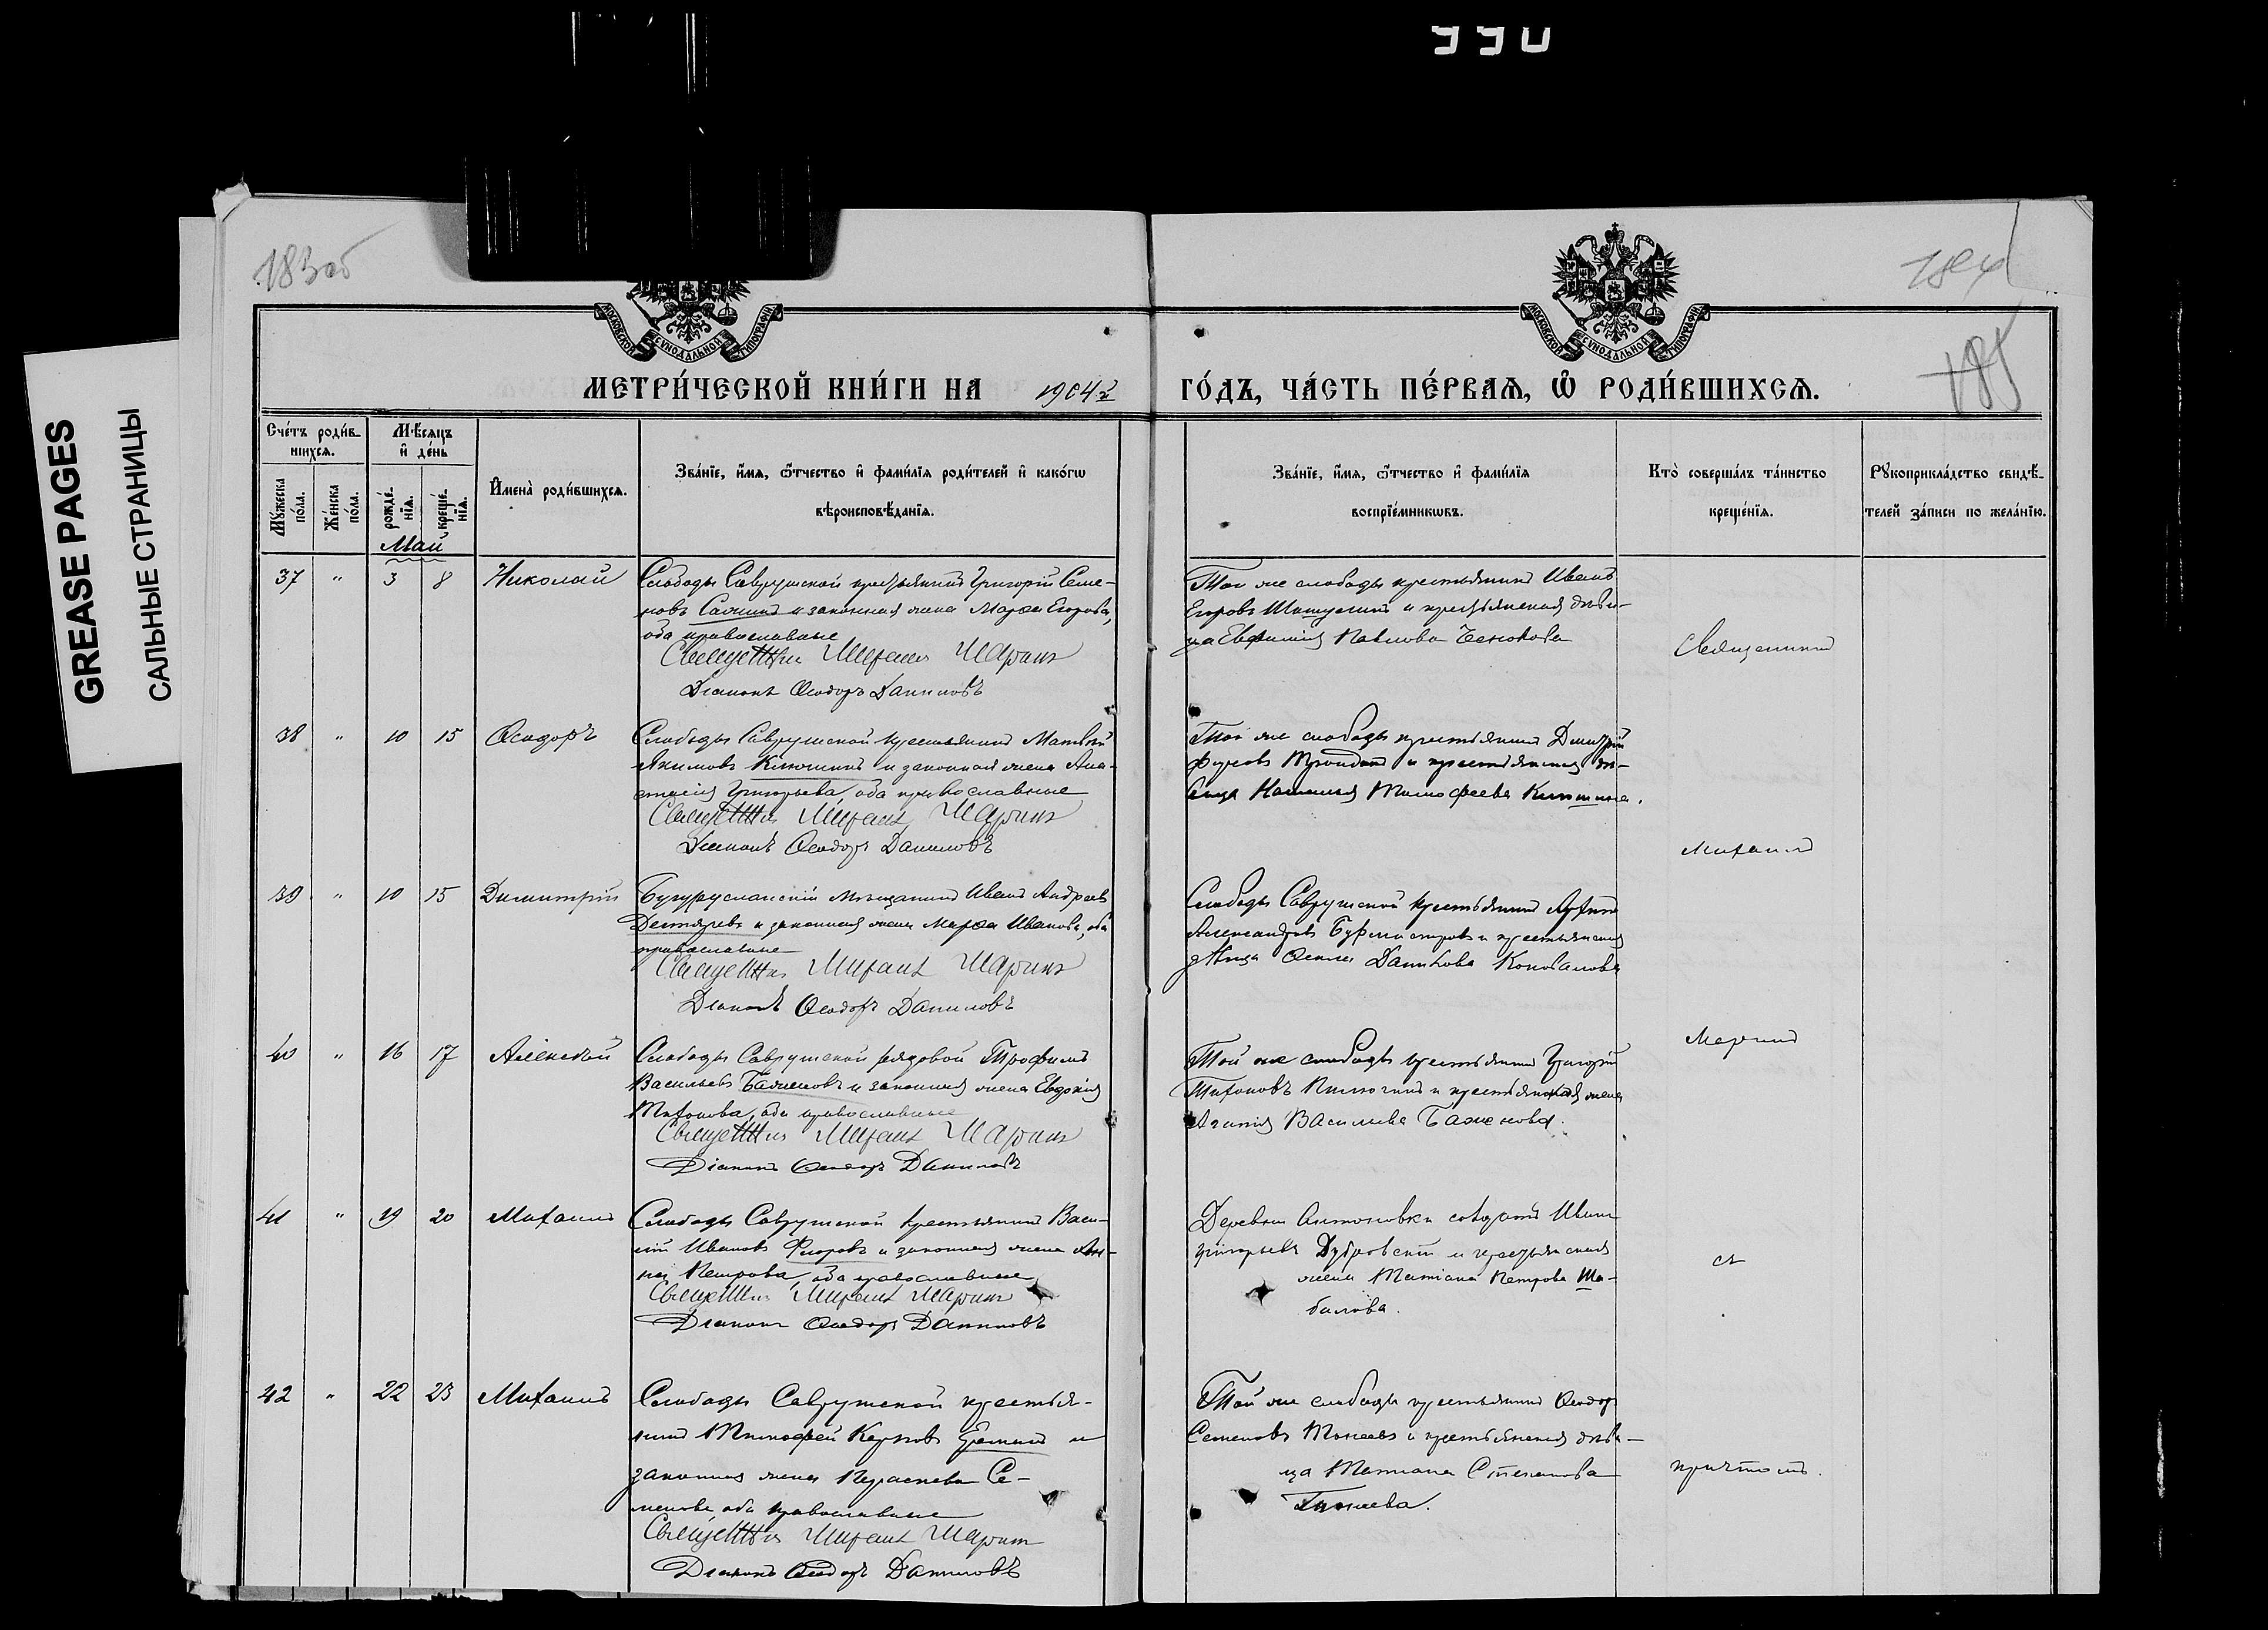 990
GREASE PAGES
САЛЬНЫЕ СТРАНИЦЫ
183об
184
185
МОСКОВСКОЙ СѴНОДАЛЬНОЙ ТИПОГРАФІИ
МОСКОВСКОЙ СѴНОДАЛЬНОЙ ТИПОГРАФІИ
МЕТРИ́ЧЕСКОЙ КНИ́ГИ НА 1904й ГО́ДЪ, ЧА́СТЬ ПЕ́РВАЯ, Ѽ РОДИ́ВШИХСЯ.
Сче́тъ роди́в-
шихся.
Мѣ́сяцъ
и҆ де́нь
Му́жеска
по́ла.
Же́нска
по́ла.
рожде́-
нїя.
креще́-
нїя.
Май
И҆мена̀ роди́вшихся.
Зва́нїе, и҆́мя, ѻ҆́тчество и҆ фами́лїя роди́телей и҆ како́гѡ
вѣроисповѣ́данїя.
Зва́нїе, и҆́мя, ѻ҆́тчество и҆ фами́лїя
воспрїе́мникѡвъ.
Кто̀ соверша́лъ та́инство
креще́нїя.
Рꙋкоприкла́дство свидѣ́-
телей за́писи по жела́нїю.
37 " 3 8 Николай
Слободы Саврушской крестьянинъ Григорій Семе-
новъ и законная жена Марѳа Егорова,
оба православные
Священникъ Михаилъ Шаринъ
Діаконъ Ѳеодоръ Даниловъ
Той же слободы крестьянинъ Иванъ
Егоровъ и крестьянская дѣви-
ца Евфимія Павлова
Священникъ
38 " 10 15 Ѳеодоръ
Слободы Саврушской крестьянинъ Матвѣй
Акимовъ Клюшинъ и законная жена Ана-
стасія Григорьева, оба православные
Священникъ Михаилъ Шаринъ
Діаконъ Ѳеодоръ Даниловъ
Той же слободы крестьянинъ Дмитрій
и крестьянская дѣ-
вица Наталья Тимофеева
Михаилъ
39 " 10 15 Димитрій
Бугурусланскій мѣщанинъ Иванъ Андреевъ
Дегтяревъ и законная жена Марѳа Иванова, оба
православные
Священникъ Михаилъ Шаринъ
Діаконъ Ѳеодоръ Даниловъ
Слободы Саврушской крестьянинъ
Александровъ Бурмистровъ и крестьянская
дѣвица Данилова Коновалова
40 " 16 17 Алексѣй
Слободы Саврушской рядовой Трофимъ
Васильевъ Баженовъ и законная жена Евдокія
Тихонова, оба православные
Священникъ Михаилъ Шаринъ
Діаконъ Ѳеодоръ Даниловъ
Той же слободы крестьянинъ Григорій
Тихоновъ и крестьянская жена
Агаѳія Васильева Баженова.
41 " 19 20 Михаилъ
Слободы Саврушской крестьянинъ Васи-
лій Ивановъ Флоровъ и законная жена Ан-
на Петрова, оба православные
Священникъ Михаилъ Шаринъ
Діаконъ Ѳеодоръ Даниловъ
Деревни Антоновки солдатъ Иванъ
Григорьевъ Дубровскій и крестьянская
жена Татіана Петрова Ша-
балова.
съ
42 " 22 23 Михаилъ
Слободы Саврушской крестья-
нинъ Тимофей Карповъ и
законная жена Параскева Се-
менова, оба православные
Священникъ Михаилъ Шаринъ
Діаконъ Ѳеодоръ Даниловъ
Той же слободы крестьянинъ Ѳеодоръ
Семеновъ и крестьянская дѣви-
ца Татіана Степанова
причтомъ.